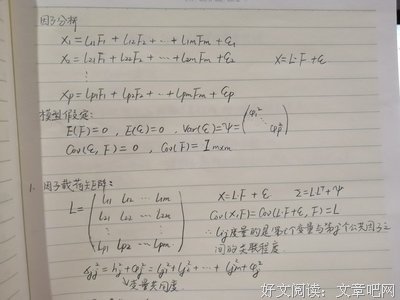 因子分析
X₁ = L₁₁F₁ + L₁₂F₂ + ⋯ + L₁mFm + ε₁
X₂ = L₂₁F₁ + L₂₂F₂ + ⋯ + L₂mFm + ε₂ X = L·F + ε
⋮
Xp = Lp₁F₁ + Lp₂F₂ + ⋯ + LpmFm + εp
模型假定:
E(F) = 0 , E(ε) = 0 , Var(ε) = Ψ = (φ₁² ⋱ φp²)
Cov(ε, F) = 0 , Cov(F) = Im×m
1. 因子载荷矩阵:
L = ( L₁₁ L₁₂ ⋯ L₁m
L₂₁ L₂₂ ⋯ L₂m
⋮ ⋮ ⋮
Lp₁ Lp₂ ⋯ Lpm )
X = L·F + ε Σ = LLᵀ + Ψ
Cov(X, F) = Cov(L·F + ε, F) = L
∴ Lij度量的是第i个变量与第j个公共因子之
间的关联程度.
变量共同度
好文阅读：文章吧网